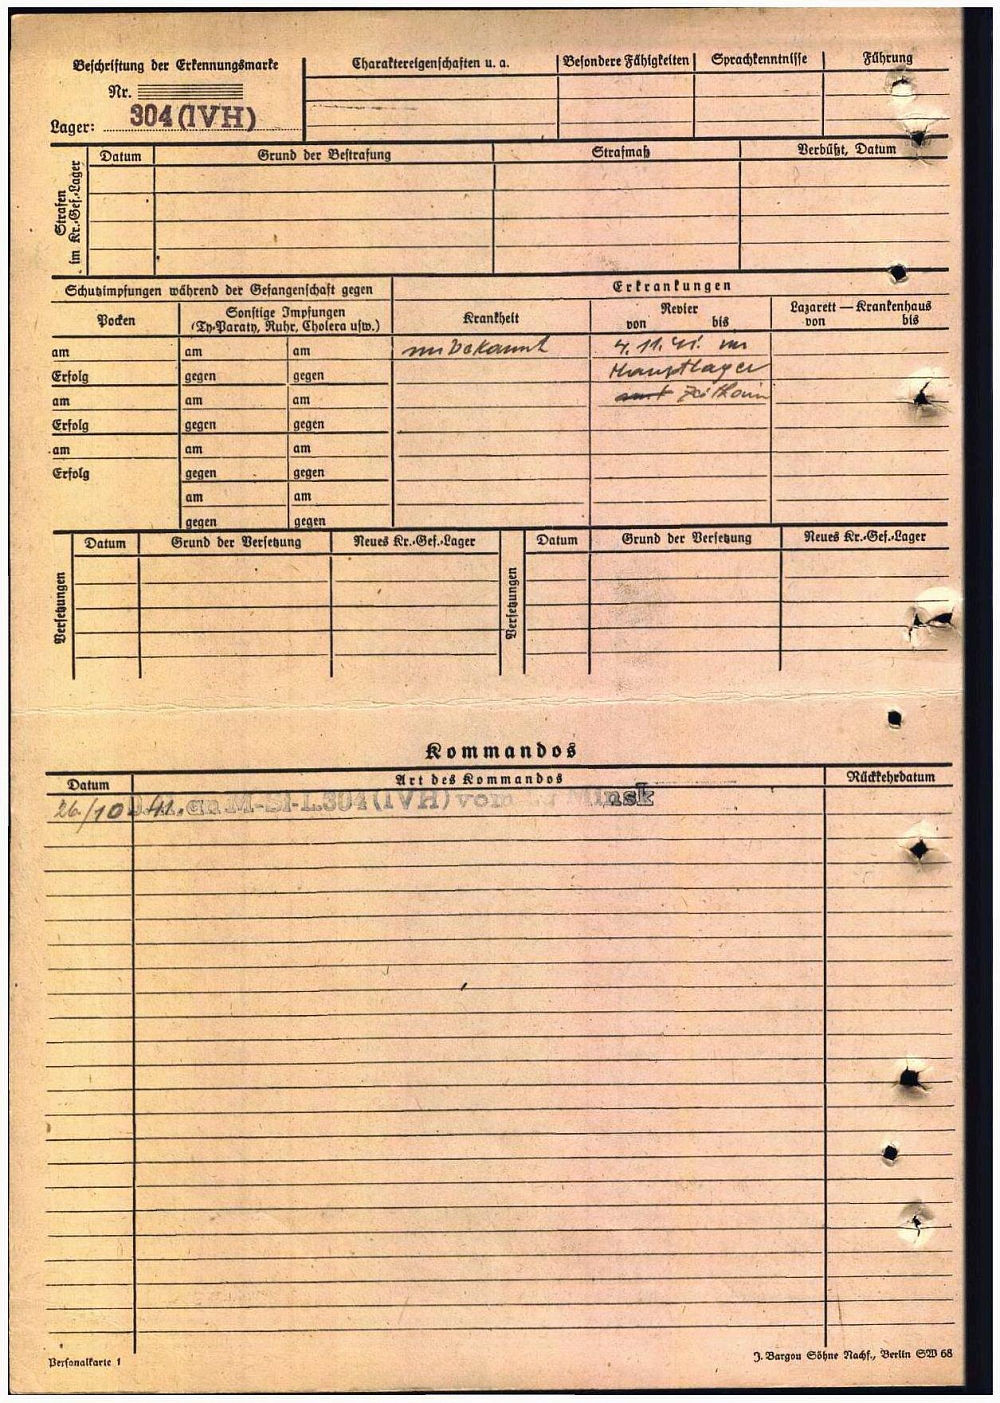 Beschriftung der Erkennungsmarke
Nr.
Lager: 304 (IVH)
Charaktereigenschaften u. a. Besondere Fähigkeiten Sprachkenntnisse Führung
Strafen im Kr.-Gef.-Lager
Datum Grund der Bestrafung Strafmaß Verbüßt, Datum
Schutzimpfungen während der Gefangenschaft gegen Erkrankungen
Pocken Sonstige Impfungen Krankheit Revier Lazarett — Krankenhaus
(Ty-Paraty, Ruhr, Cholera usw.) von bis von bis
am am am unbekannt 4.11.41. im
Erfolg gegen gegen Hauptlager
am am am Zeithain
Erfolg gegen gegen
am am am
Erfolg gegen gegen
am am
gegen gegen
Versetzungen
Datum Grund der Versetzung Neues Kr.-Gef.-Lager
Versetzungen
Datum Grund der Versetzung Neues Kr.-Gef.-Lager
Kommandos
Datum Art des Kommandos Rückkehrdatum
26/10 41. an M-St-L.304 (IVH) vom Minsk
Personalkarte 1 J. Bargou Söhne Nachf., Berlin SW 68